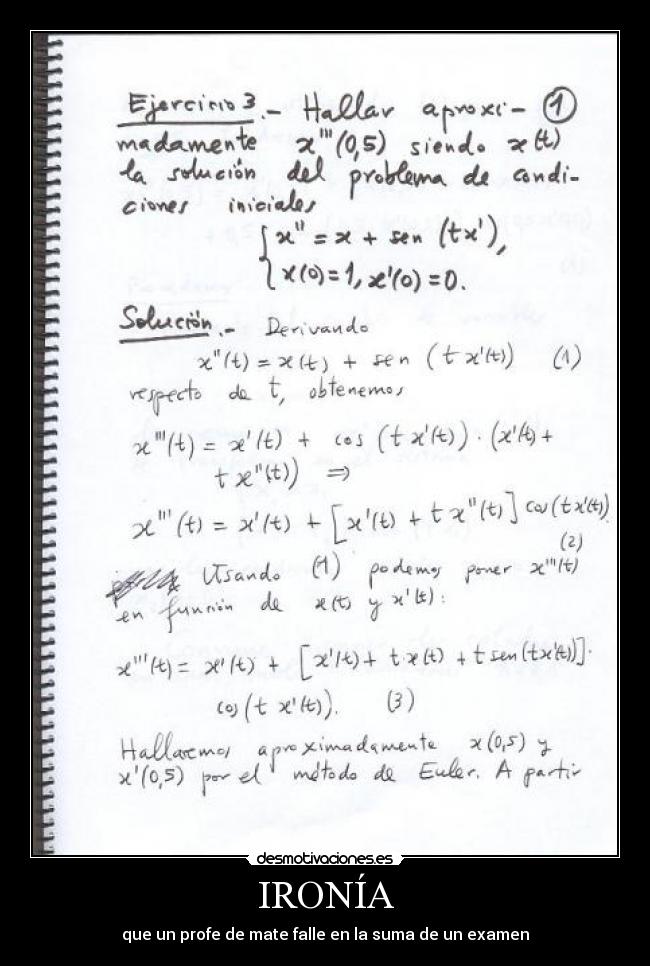 Ejercicio 3.- Hallar aproxi- ①
madamente x'''(0,5) siendo x(t)
la solución del problema de condi-
ciones iniciales
{ x'' = x + sen (tx'),
x(0)=1, x'(0)=0.
Solución.- Derivando
x''(t) = x(t) + sen (t x'(t)) (1)
respecto de t, obtenemos
x'''(t) = x'(t) + cos (t x'(t)) · (x'(t) +
t x''(t)) ⇒
x'''(t) = x'(t) + [x'(t) + t x''(t)] cos(t x'(t))
(2)
Usando (1) podemos poner x'''(t)
en función de x(t) y x'(t):
x'''(t) = x'(t) + [x'(t) + t·x(t) + t sen(tx'(t))]·
cos(t x'(t)). (3)
Hallaremos aproximadamente x(0,5) y
x'(0,5) por el método de Euler. A partir
desmotivaciones.es
IRONÍA
que un profe de mate falle en la suma de un examen